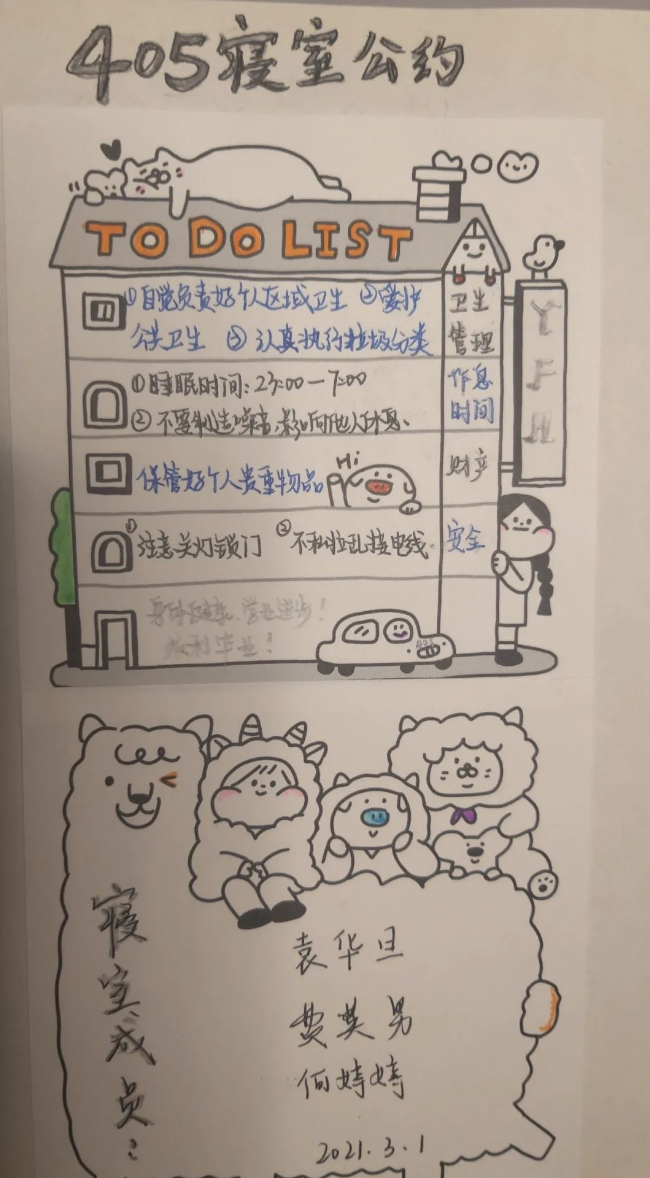 405寝室公约
TO DO LIST
①自觉负责好个人区域卫生 ②爱护
公共卫生 ③认真执行垃圾分类
卫生
管理
①睡眠时间:23:00—7:00
②不要制造噪音,影响他人休息、
作息
时间
Hi
保管好个人贵重物品
财产
①注意关灯锁门 ②不私拉乱接电线
安全
身体健康、学业进步!
顺利毕业!
Y
F
H
寝室成员:
袁华旦
费英男
何婷婷
2021.3.1